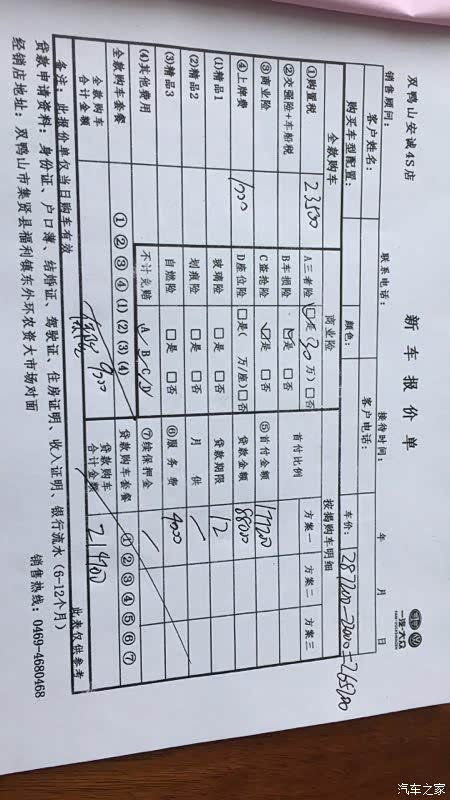 新车报价单
一汽-大众
双鸭山安诚4S店
销售顾问： 联系电话： 接待时间： 年 月 日
客户姓名： 客户电话：
购买车型配置： 颜色： 车价： 287200-22000=265200
全款购车 商业险 按揭购车明细
①购置税 23500 A三者险 是 30万 否 首付比例 方案一 方案二 方案三
②交强险+车船税 B车损险 是 否
③商业险 C盗抢险 是 否 ⑤首付金额 177200
④上牌费 1000 D座位险 是( 万/座) 否 贷款金额 88000
(1)精品1 玻璃险 是 否 贷款期限 12
(2)精品2 划痕险 是 否 月供
(3)精品3 自燃险 是 否 ⑥服务费 4000
(4)其他费用 不计免赔 A B C D ⑦续保押金
全款购车套餐 ①②③④(1)(2)(3)(4) 贷款购车套餐 ①②③④⑤⑥⑦
全款购车合计金额 9000 贷款购车合计金额
备注：此报价单仅当日购车有效 此表仅供参考
贷款申请资料：身份证、户口簿、结婚证、驾驶证、住房证明、收入证明、银行流水（6-12个月）
经销店地址：双鸭山市集贤县福利镇东外环农资大市场对面 销售热线：0469-4680468
汽车之家